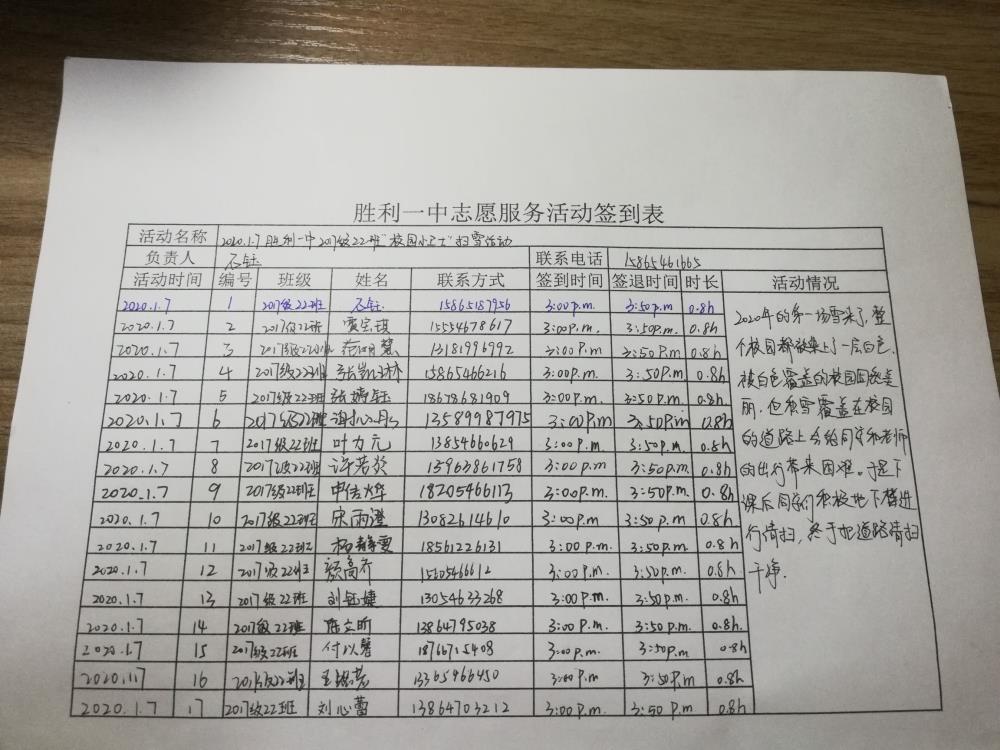 胜利一中志愿服务活动签到表
活动名称 2020.1.7胜利一中2017级22班"校园小卫士"扫雪活动
负责人 石钰 联系电话 15865461665
活动时间 编号 班级 姓名 联系方式 签到时间 签退时间 时长 活动情况
2020.1.7 1 2017级22班 石钰 15865187956 3:00p.m. 3:50p.m 0.8h
2020.1.7 2 2017级22班 15554678617 3:00P.m. 3:50p.m. 0.8h
2020.1.7 3 2017级22班 13181996992 3:00 P.m 3:50P.m. 0.8h
2020.1.7 4 2017级22班 15865466216 3:00P.m. 3:50P.m 0.8h
2020.1.7 5 2017级22班 张婧钰 18678681909 3:00P.m. 3:50 P.m. 0.8h
2020.1.7 6 2017级22班 13589987975 3:00P.m 3:50P.m 0.8h
2020.1.7 7 2017级22班 叶力元 13854660629 3:00 P.m. 3:50 P.m. 0.8h
2020.1.7 8 2017级22班 13963861758 3:00P.m 3:50P.m. 0.8h
2020.1.7 9 2017级22班 申佳烨 18205466113 3:00P.m. 3:50P.m. 0.8h
2020.1.7 10 2017级22班 宋雨澄 13082614610 3:00 P.m 3:50 P.m 0.8h
2020.1.7 11 2017级22班 杨静雯 18561226131 3:00 P.m. 3:50P.m. 0.8h
2020.1.7 12 2017级22班 颜高乔 15605466612 3:00 P.m. 3:50P.m. 0.8h
2020.1.7 13 2017级22班 刘钰婕 13054633268 3:00 P.m. 3:50P.m. 0.8h
2020.1.7 14 2017级22班 陈立昕 13864795038 3:00 P.m. 3:50 P.m. 0.8h.
2020.1.7 15 2017级22班 付以馨 18766715408 3:00 P.m. 3:50P.m 0.8h
2020.1.7 16 2017级22班 13365966450 3:00 P.m 3:50 P.m 0.8h
2020.1.7 17 2017级22班 刘心蕾 13864703212 3:00 P.m. 3:50 P.m 0.8h
2020年的第一场雪来了,整
个校园都被染上了一层白色.
被白色覆盖的校园固然美
丽,但积雪覆盖在校园
的道路上会给同学和老师
的出行带来困难。于是下
课后同学们积极地下楼进
行清扫,终于把道路清扫
干净.